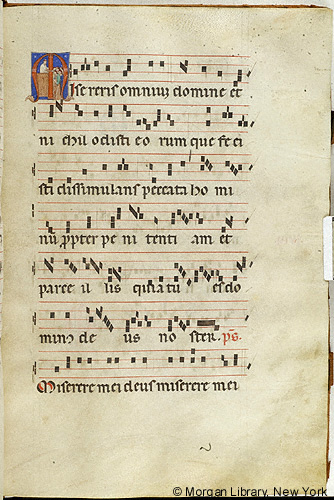 Misereris omnium domine et
ni chil odisti eo rum que fe ci
sti dissimulans peccata ho mi
nū ꝓpter pe ni tenti am et
parce il lis quia tu es do
minꝰ de us no ster. p̄s.
Miserere mei deus miserere mei
© Morgan Library, New York